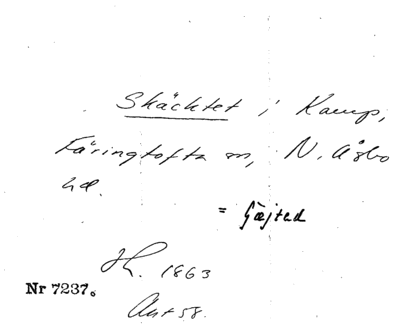 Skäcktet i Kamp,
Färingtofta sn, N. Åsbo
hd.
= Gæjted
H. 1863
Nr 7237.
Akt 58.